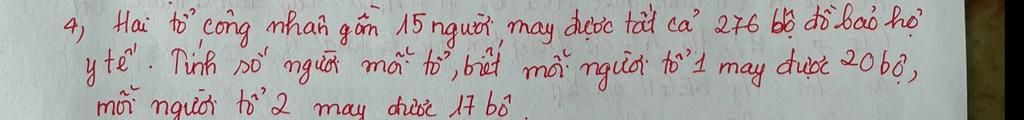 4, Hai tổ công nhân gồm 15 người, may được tất cả 276 bộ đồ bảo hộ
y tế. Tính số người mỗi tổ, biết mỗi người tổ 1 may được 20 bộ,
mỗi người tổ 2 may được 17 bộ.